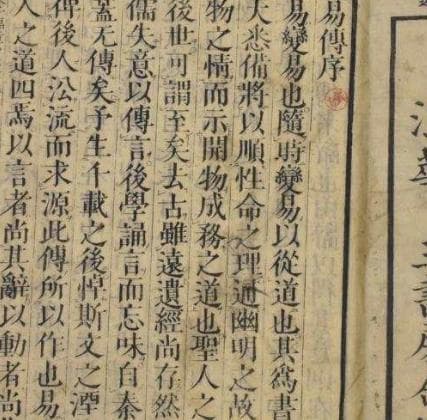 易傳序
易變易也隨時變易以從道也其爲書
大悉備將以順性命之理通幽明之故
物之情而示開物成務之道也聖人之
後世可謂至矣去古雖遠遺經尚存
儒失意以傳言後學誦言而忘味自秦
蓋无傳矣予生千載之後悼斯文之湮
俾後人沿流而求源此傳所以作也易
人之道四焉以言者尚其辭以動者尚